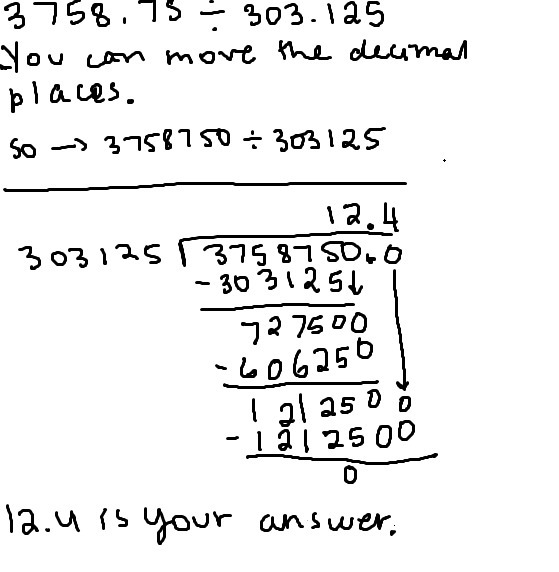 3758.75 ÷ 303.125
You can move the decimal
places.
so → 3758750 ÷ 303125
12.4
303125 √3758750.0
-303125↓
727500
-606250
1212500
-1212500
0
12.4 is your answer.